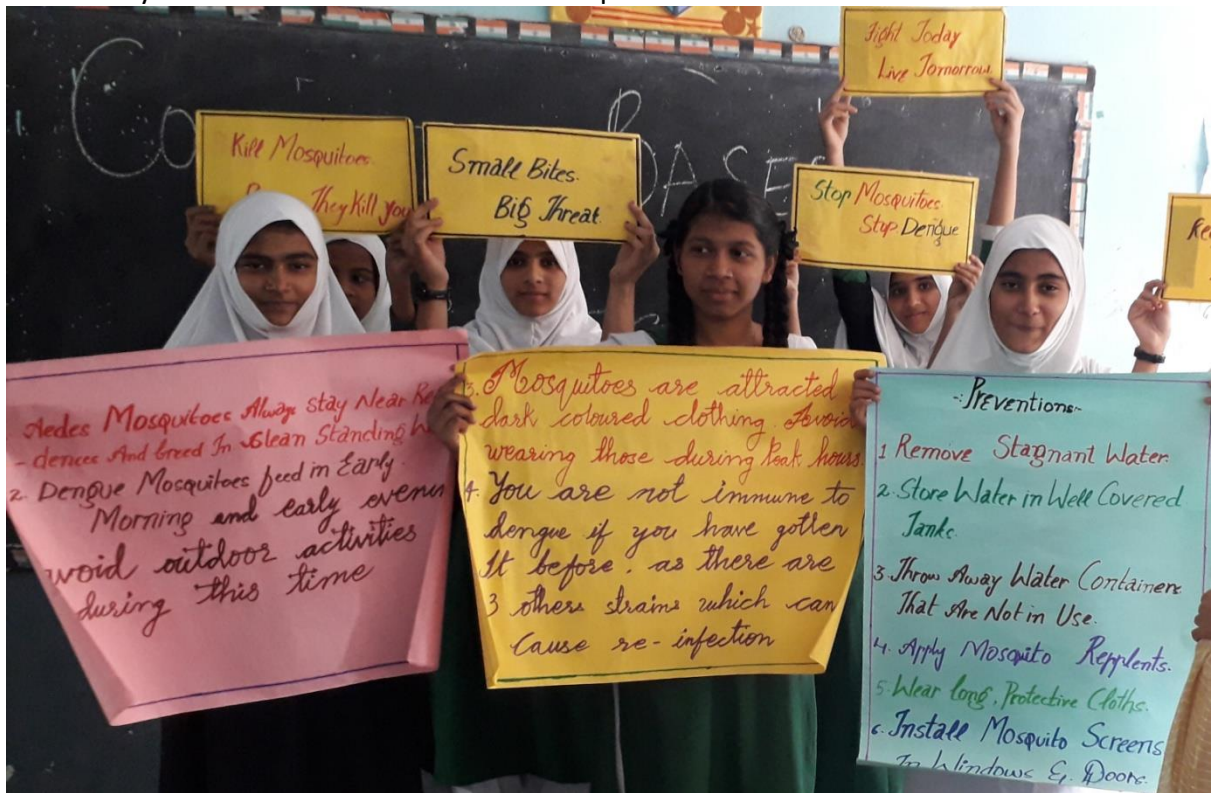 Fight Today
Live Tomorrow
Kill Mosquitoes.
They Kill you
Small Bites.
Big Threat.
Stop Mosquitoes
Stup Dengue
Co
BASES
Aedes Mosquitoes Always stay Near Re
- dences And breed In Clean Standing W
2. Dengue Mosquitoes feed in Early
Morning and early evenin
void outdoor activities
during this time
3. Mosquitoes are attracted
dark coloured clothing. Avoid
wearing those during Peak hours.
4. You are not immune to
dengue if you have gotten
It before. as there are
3 others strains which can
Cause re-infection
-: Preventions:-
1 Remove Stagnant Water.
2. Store Water in Well Covered
Tanks.
3. Throw Away Water Containers
That Are Not in Use.
4. Apply Mosquito Repplents.
5. Wear long, Protective Cloths.
6. Install Mosquito Screens
In Windows & Doors.